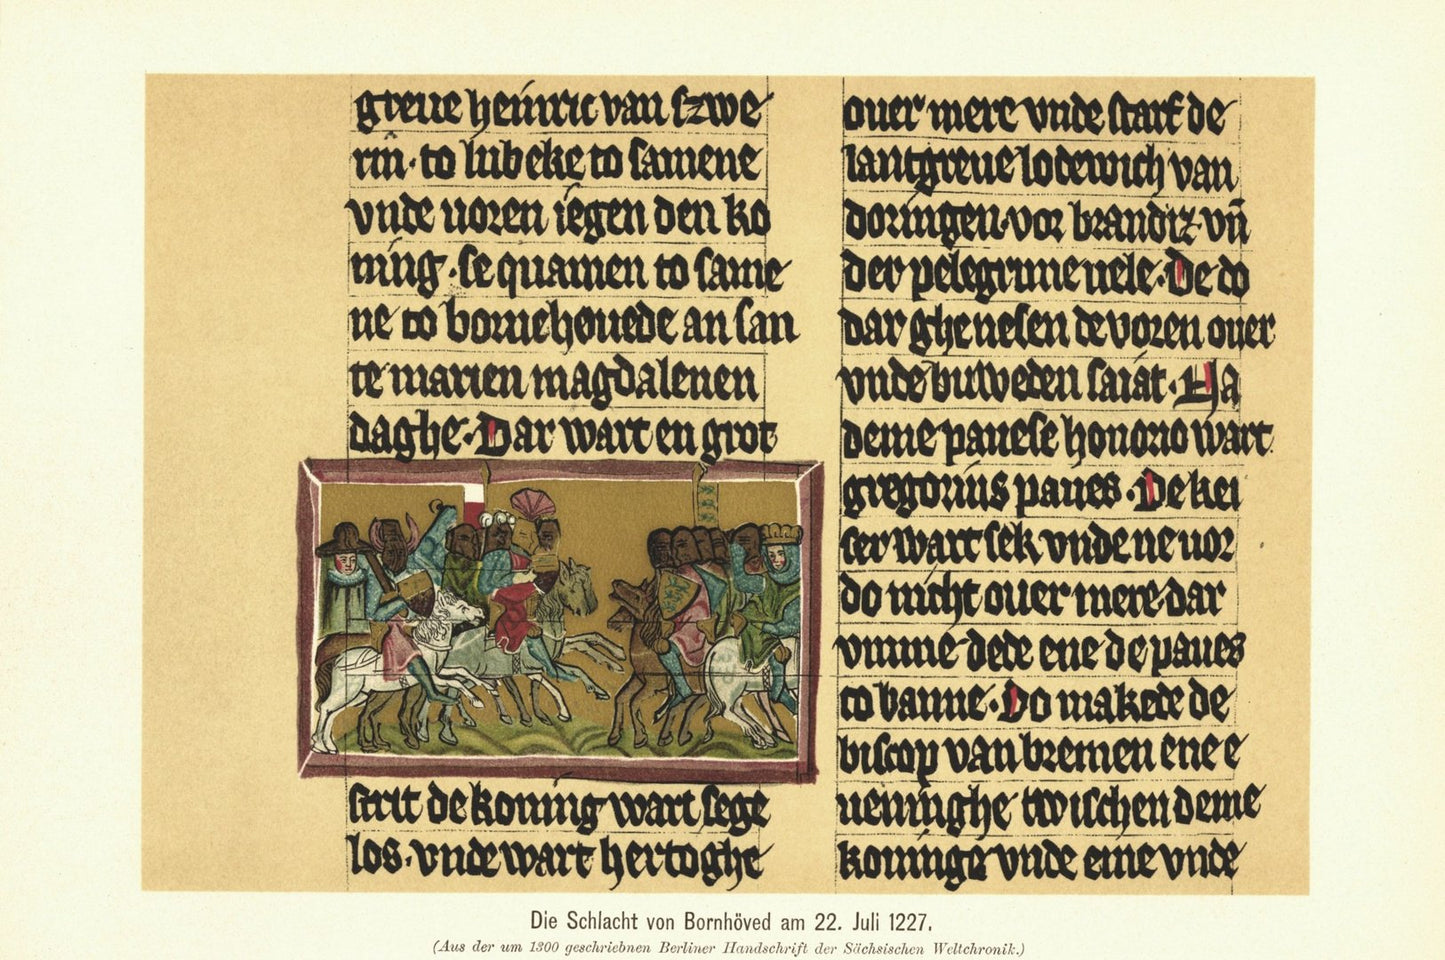 greue heinric van szwe
rin· to lubeke to samene
vnde uoren iegen den ko
ning· se quamen to same
ne to bornehouede an san
te marien magdalenen
daghe· Dar wart en grot
strit de koning wart sege
los· vnde wart hertoghe
ouer mere vnde starf de
lantgreue lodewich van
doringen· vor brandiz· vn̄
der pelegrime uele· De do
dar ghenesen de voren ouer
vnde buweden saiat· Na
deme pauese honorio wart
gregorius paues· De kei
ser wart sek vnde ne uor
do nicht ouer mere· dar
vmme dede ene de paues
to banne· Do makede de
biscop van bremen ene e
ueninghe twischen deme
koninge vnde eme vnde
Die Schlacht von Bornhöved am 22. Juli 1227.
(Aus der um 1300 geschriebnen Berliner Handschrift der Sächsischen Weltchronik.)